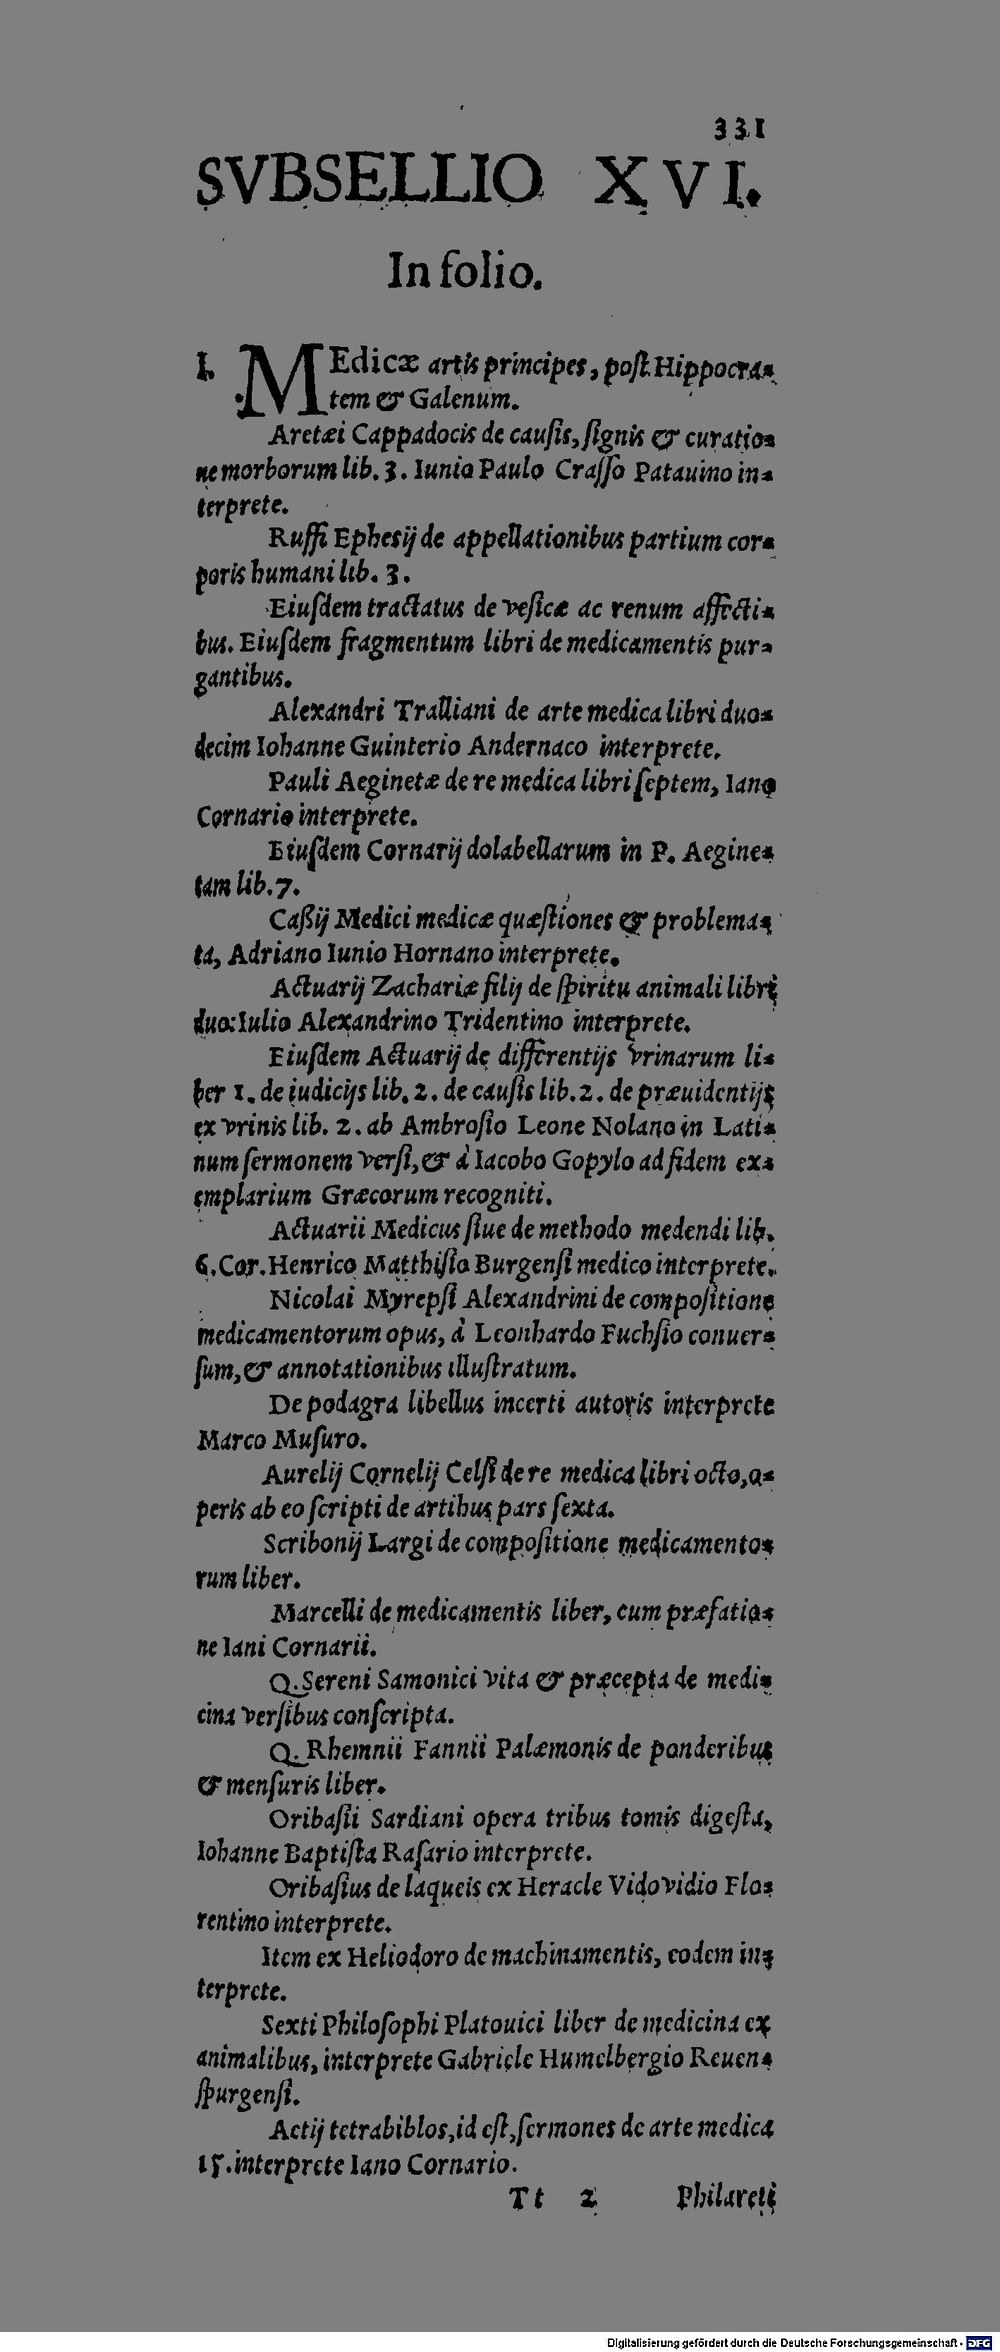 331
SVBSELLIO XVI.
In folio.
I. MEdicæ artis principes, post Hippocra-
tem & Galenum.
Aretæi Cappadocis de causis, signis & curatio-
ne morborum lib. 3. Iunio Paulo Crasso Patauino in-
terprete.
Ruffi Ephesij de appellationibus partium cor-
poris humani lib. 3.
Eiusdem tractatus de vesicæ ac renum affecti-
bus. Eiusdem fragmentum libri de medicamentis pur-
gantibus.
Alexandri Tralliani de arte medica libri duo-
decim Iohanne Guinterio Andernaco interprete.
Pauli Aeginetæ de re medica libri septem, Iano
Cornario interprete.
Eiusdem Cornarij dolabellarum in P. Aegine-
tam lib. 7.
Caßij Medici medicæ quæstiones & problema-
ta, Adriano Iunio Hornano interprete.
Actuarij Zachariæ filij de spiritu animali libri
duo: Iulio Alexandrino Tridentino interprete.
Eiusdem Actuarij de differentijs vrinarum li-
ber 1. de iudicijs lib. 2. de causis lib. 2. de præuidentijs
ex vrinis lib. 2. ab Ambrosio Leone Nolano in Lati-
num sermonem versi, & à Iacobo Gopylo ad fidem ex-
emplarium Græcorum recogniti.
Actuarii Medicus siue de methodo medendi lib.
6. Cor. Henrico Matthisio Burgensi medico interprete.
Nicolai Myrepsi Alexandrini de compositione
medicamentorum opus, à Leonhardo Fuchsio conuer-
sum, & annotationibus illustratum.
De podagra libellus incerti autoris interprete
Marco Musuro.
Aurelij Cornelij Celsi de re medica libri octo, o-
peris ab eo scripti de artibus pars sexta.
Scribonij Largi de compositione medicamento-
rum liber.
Marcelli de medicamentis liber, cum præfatio-
ne Iani Cornarii.
Q. Sereni Samonici vita & præcepta de medi-
cina versibus conscripta.
Q. Rhemnii Fannii Palæmonis de ponderibus
& mensuris liber.
Oribasii Sardiani opera tribus tomis digesta,
Iohanne Baptista Rasario interprete.
Oribasius de laqueis ex Heracle Vidovidio Flo-
rentino interprete.
Item ex Heliodoro de machinamentis, eodem in-
terprete.
Sexti Philosophi Platouici liber de medicina ex
animalibus, interprete Gabriele Humelbergio Reuen-
spurgensi.
Aetij tetrabiblos, id est, sermones de arte medica
15. interprete Iano Cornario.
Tt 2 Philareti
Digitalisierung gefördert durch die Deutsche Forschungsgemeinschaft - DFG